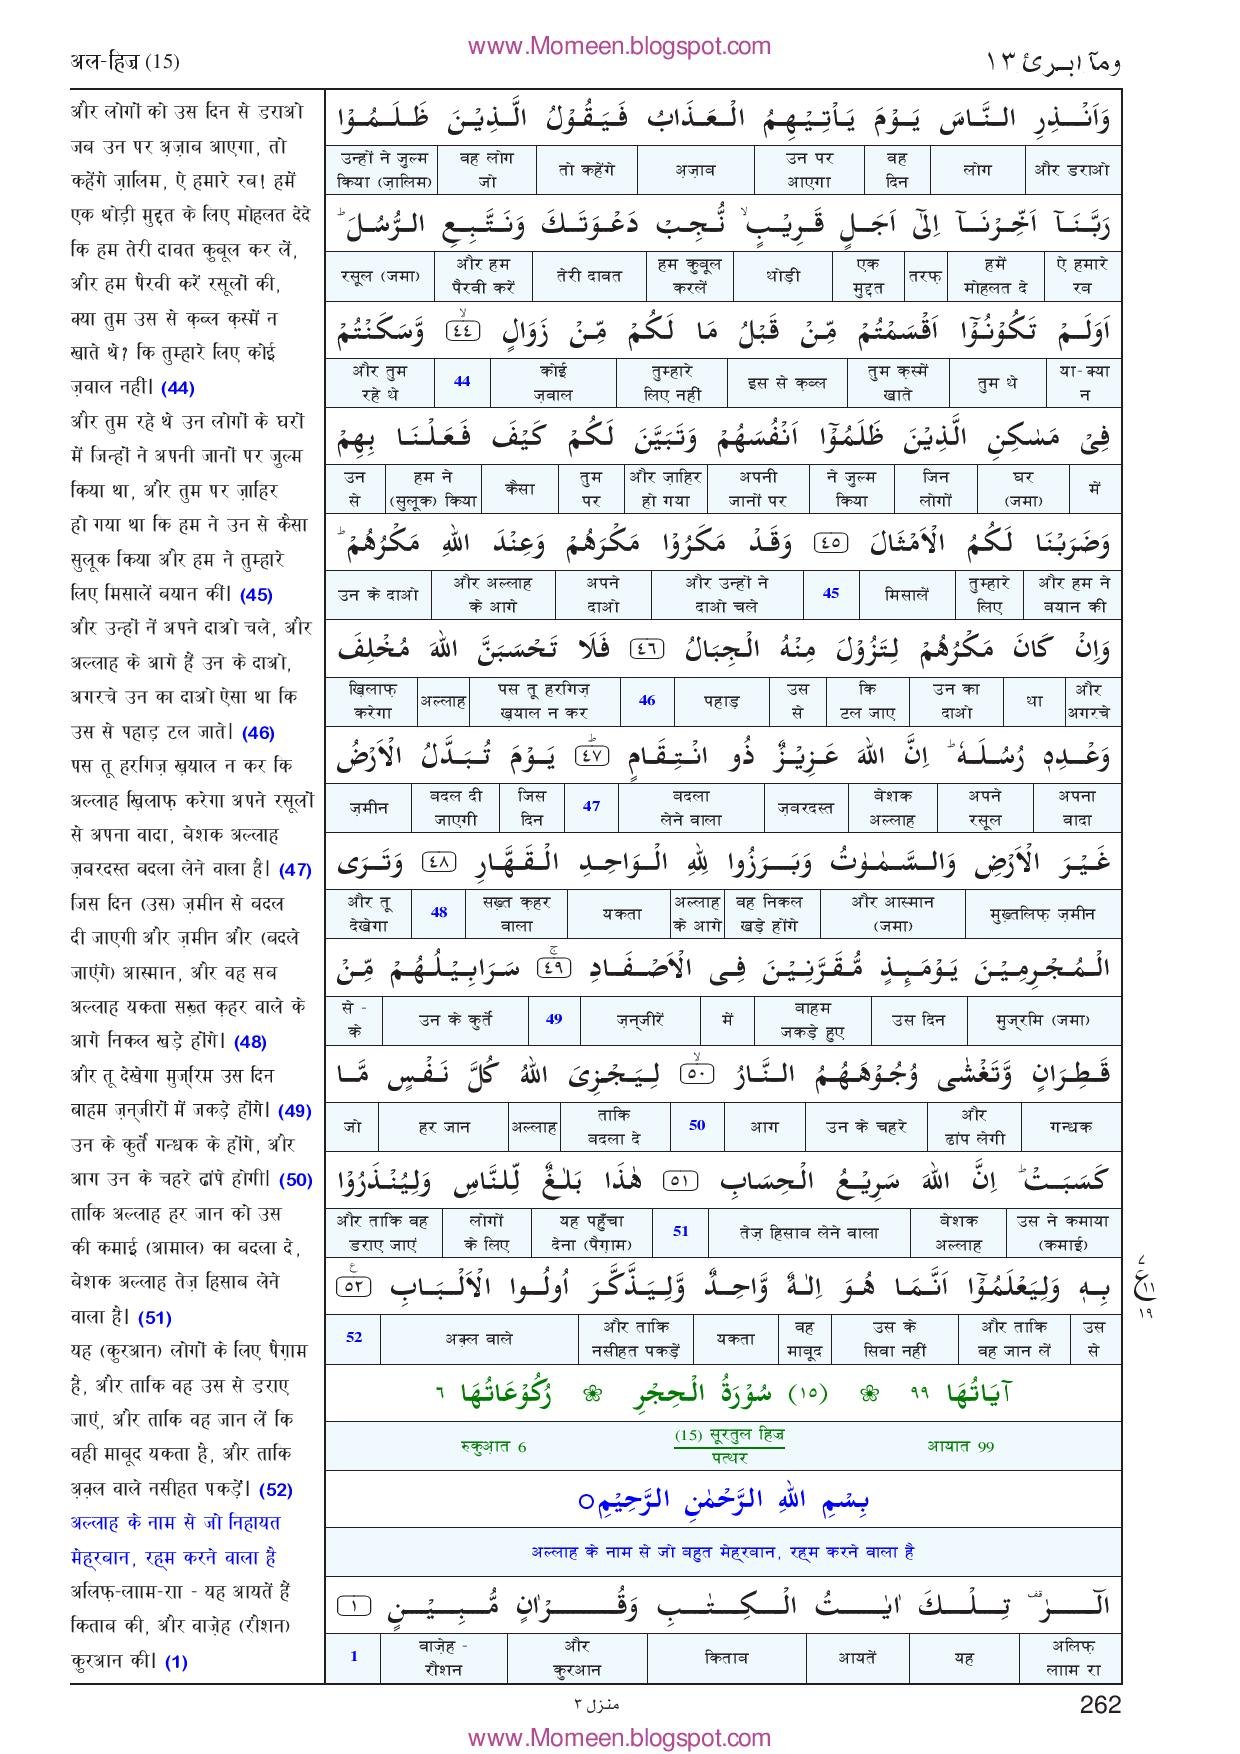 www.Momeen.blogspot.com
अल-हिज्र (15)
ومآ ابرئ ١٣
और लोगों को उस दिन से डराओ
जब उन पर अ़ज़ाब आएगा, तो
कहेंगे ज़ालिम, ऐ हमारे रब! हमें
एक थोड़ी मुद्दत के लिए मोहलत देदे
कि हम तेरी दावत कुबूल कर लें,
और हम पैरवी करें रसूलों की,
क्या तुम उस से क़ब्ल क़स्में न
खाते थे? कि तुम्हारे लिए कोई
ज़वाल नहीं। (44)
और तुम रहे थे उन लोगों के घरों
में जिन्हों ने अपनी जानों पर जुल्म
किया था, और तुम पर ज़ाहिर
हो गया था कि हम ने उन से कैसा
सुलूक किया और हम ने तुम्हारे
लिए मिसालें बयान कीं। (45)
और उन्हों नें अपने दाओ चले, और
अल्लाह के आगे हैं उन के दाओ,
अगरचे उन का दाओ ऐसा था कि
उस से पहाड़ टल जाते। (46)
पस तू हरगिज़ ख़याल न कर कि
अल्लाह ख़िलाफ़ करेगा अपने रसूलों
से अपना वादा, बेशक अल्लाह
ज़बरदस्त बदला लेने वाला है। (47)
जिस दिन (उस) ज़मीन से बदल
दी जाएगी और ज़मीन और (बदले
जाएंगे) आस्मान, और वह सब
अल्लाह यकता सख़्त क़हर वाले के
आगे निकल खड़े होंगे। (48)
और तू देखेगा मुज्रिम उस दिन
बाहम ज़न्जीरों में जकड़े होंगे। (49)
उन के कुर्ते गन्धक के होंगे, और
आग उन के चहरे ढांपे होगी। (50)
ताकि अल्लाह हर जान को उस
की कमाई (आमाल) का बदला दे,
बेशक अल्लाह तेज़ हिसाब लेने
वाला है। (51)
यह (कुरआन) लोगों के लिए पैग़ाम
है, और ताकि वह उस से डराए
जाएं, और ताकि वह जान लें कि
वही माबूद यकता है, और ताकि
अ़क़्ल वाले नसीहत पकड़ें। (52)
अल्लाह के नाम से जो निहायत
मेह्रबान, रह्म करने वाला है
अलिफ़-लााम-राा - यह आयतें हैं
किताब की, और वाज़ेह (रौशन)
कुरआन की। (1)
وَاَنْذِرِ النَّاسَ يَوْمَ يَاْتِيْهِمُ الْعَذَابُ فَيَقُوْلُ الَّذِيْنَ ظَلَمُوْا
उन्हों ने जुल्म किया (ज़ालिम) वह लोग जो तो कहेंगे अ़ज़ाब उन पर आएगा वह दिन लोग और डराओ
رَبَّنَآ اَخِّرْنَآ اِلٰٓى اَجَلٍ قَرِيْبٍ ۙ نُّجِبْ دَعْوَتَكَ وَنَتَّبِعِ الرُّسُلَ ؕ
रसूल (जमा) और हम पैरवी करें तेरी दावत हम कुबूल करलें थोड़ी एक मुद्दत तरफ़ हमें मोहलत दे ऐ हमारे रब
اَوَلَمْ تَكُوْنُوْٓا اَقْسَمْتُمْ مِّنْ قَبْلُ مَا لَكُمْ مِّنْ زَوَالٍ ۙ ٤٤ وَّسَكَنْتُمْ
और तुम रहे थे 44 कोई ज़वाल तुम्हारे लिए नहीं इस से क़ब्ल तुम क़स्में खाते तुम थे या-क्या न
فِيْ مَسٰكِنِ الَّذِيْنَ ظَلَمُوْٓا اَنْفُسَهُمْ وَتَبَيَّنَ لَكُمْ كَيْفَ فَعَلْنَا بِهِمْ
उन से हम ने (सुलूक) किया कैसा तुम पर और ज़ाहिर हो गया अपनी जानों पर ने जुल्म किया जिन लोगों घर (जमा) में
وَضَرَبْنَا لَكُمُ الْاَمْثَالَ ٤٥ وَقَدْ مَكَرُوْا مَكْرَهُمْ وَعِنْدَ اللهِ مَكْرُهُمْ ؕ
उन के दाओ और अल्लाह के आगे अपने दाओ और उन्हों ने दाओ चले 45 मिसालें तुम्हारे लिए और हम ने बयान की
وَاِنْ كَانَ مَكْرُهُمْ لِتَزُوْلَ مِنْهُ الْجِبَالُ ٤٦ فَلَا تَحْسَبَنَّ اللهَ مُخْلِفَ
ख़िलाफ़ करेगा अल्लाह पस तू हरगिज़ ख़याल न कर 46 पहाड़ उस से कि टल जाए उन का दाओ था और अगरचे
وَعْدِهٖ رُسُلَهٗ ؕ اِنَّ اللهَ عَزِيْزٌ ذُو انْتِقَامٍ ؕ ٤٧ يَوْمَ تُبَدَّلُ الْاَرْضُ
ज़मीन बदल दी जाएगी जिस दिन 47 बदला लेने वाला ज़बरदस्त बेशक अल्लाह अपने रसूल अपना वादा
غَيْرَ الْاَرْضِ وَالسَّمٰوٰتُ وَبَرَزُوا لِلهِ الْوَاحِدِ الْقَهَّارِ ٤٨ وَتَرَى
और तू देखेगा 48 सख़्त क़हर वाला यकता अल्लाह के आगे वह निकल खड़े होंगे और आस्मान (जमा) मुख़्तलिफ़ ज़मीन
الْمُجْرِمِيْنَ يَوْمَىِٕذٍ مُّقَرَّنِيْنَ فِى الْاَصْفَادِ ۚ ٤٩ سَرَابِيْلُهُمْ مِّنْ
से - के उन के कुर्ते 49 ज़न्जीरें में बाहम जकड़े हुए उस दिन मुज्रमि (जमा)
قَطِرَانٍ وَّتَغْشٰى وُجُوْهَهُمُ النَّارُ ۙ ٥٠ لِيَجْزِىَ اللهُ كُلَّ نَفْسٍ مَّا
जो हर जान अल्लाह ताकि बदला दे 50 आग उन के चहरे और ढांप लेगी गन्धक
كَسَبَتْ ؕ اِنَّ اللهَ سَرِيْعُ الْحِسَابِ ٥١ هٰذَا بَلٰغٌ لِّلنَّاسِ وَلِيُنْذَرُوْا
और ताकि वह डराए जाएं लोगों के लिए यह पहुँचा देना (पैग़ाम) 51 तेज़ हिसाब लेने वाला बेशक अल्लाह उस ने कमाया (कमाई)
بِهٖ وَلِيَعْلَمُوْٓا اَنَّمَا هُوَ اِلٰهٌ وَّاحِدٌ وَّلِيَذَّكَّرَ اُولُوا الْاَلْبَابِ ٥٢ ع
٧ ع ١١ ١٩
52 अक़्ल वाले और ताकि नसीहत पकड़ें यकता वह माबूद उस के सिवा नहीं और ताकि वह जान लें उस से
آيَاتُهَا ٩٩ ❀ (١٥) سُوْرَةُ الْحِجْرِ ❀ رُكُوْعَاتُهَا ٦
रुकुआ़त 6 (15) सूरतुल हिज्र पत्थर आयात 99
بِسْمِ اللهِ الرَّحْمٰنِ الرَّحِيْمِ○
अल्लाह के नाम से जो बहुत मेह्रबान, रह्म करने वाला है
الٓرٰ ۟ تِلْكَ اٰيٰتُ الْكِتٰبِ وَقُرْاٰنٍ مُّبِيْنٍ ١
1 वाज़ेह - रौशन और कुरआन किताब आयतें यह अलिफ़ लााम रा
منزل ٣
262
www.Momeen.blogspot.com